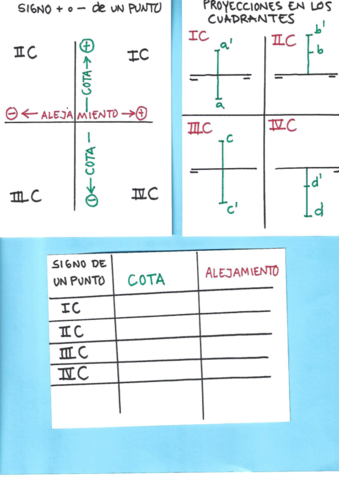 SIGNO + o - de UN PUNTO
II C
+
I C
COTA
- ALEJAMIENTO +
COTA
III C
-
IV C
PROYECCIONES EN LOS
CUADRANTES
I C
a'
a
II C
b'
b
III C
c
c'
IV C
d'
d
SIGNO DE
UN PUNTO
COTA
ALEJAMIENTO
I C
II C
III C
IV C